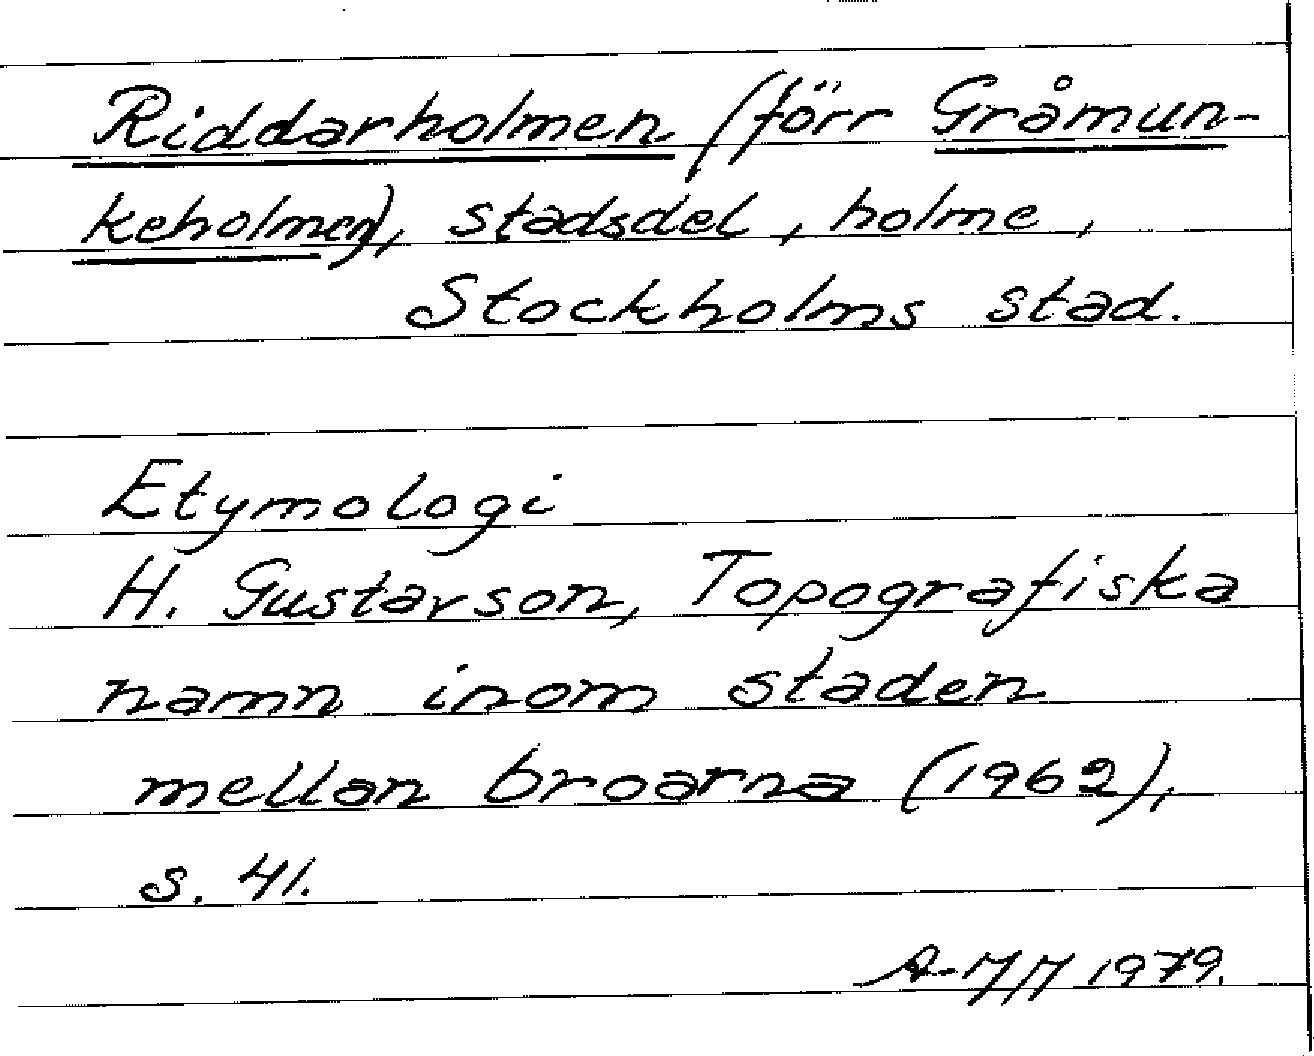 Riddarholmen (förr Gråmun-
keholmen), stadsdel, holme,
Stockholms stad.
Etymologi
H. Gustavson, Topografiska
namn inom staden
mellan broarna (1962),
s. 41.
1979.